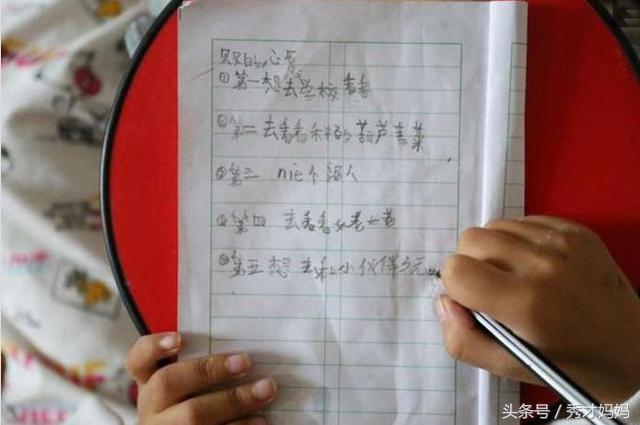 贝贝的心愿
①第一想去学校看看
②第二去看看葫芦青菜
③第三 nie个泥人
④第四 去看看老
⑤第五想 去和小伙伴多元
头条号 / 秀才妈妈